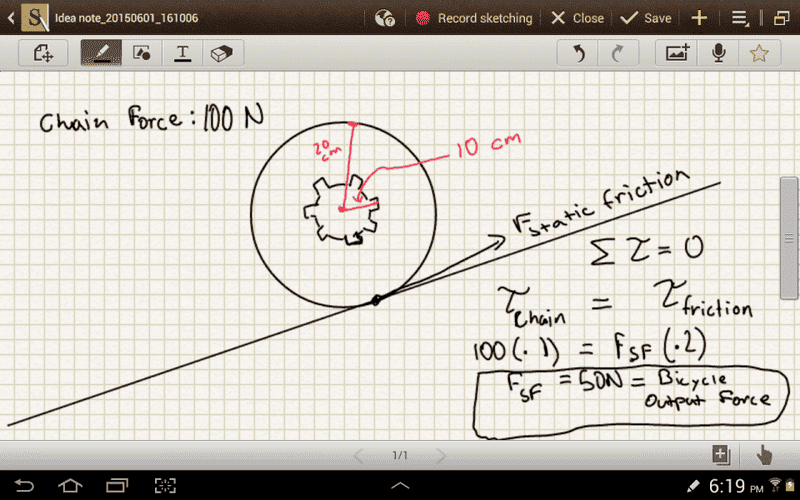 Idea note_20150601_161006
Record sketching
Close
Save
Chain Force: 100 N
20 cm
10 cm
Fstatic friction
Σ τ = 0
τchain = τfriction
100(.1) = FSF(.2)
FSF = 50N = Bicycle
Output Force
1/1
6:19 PM